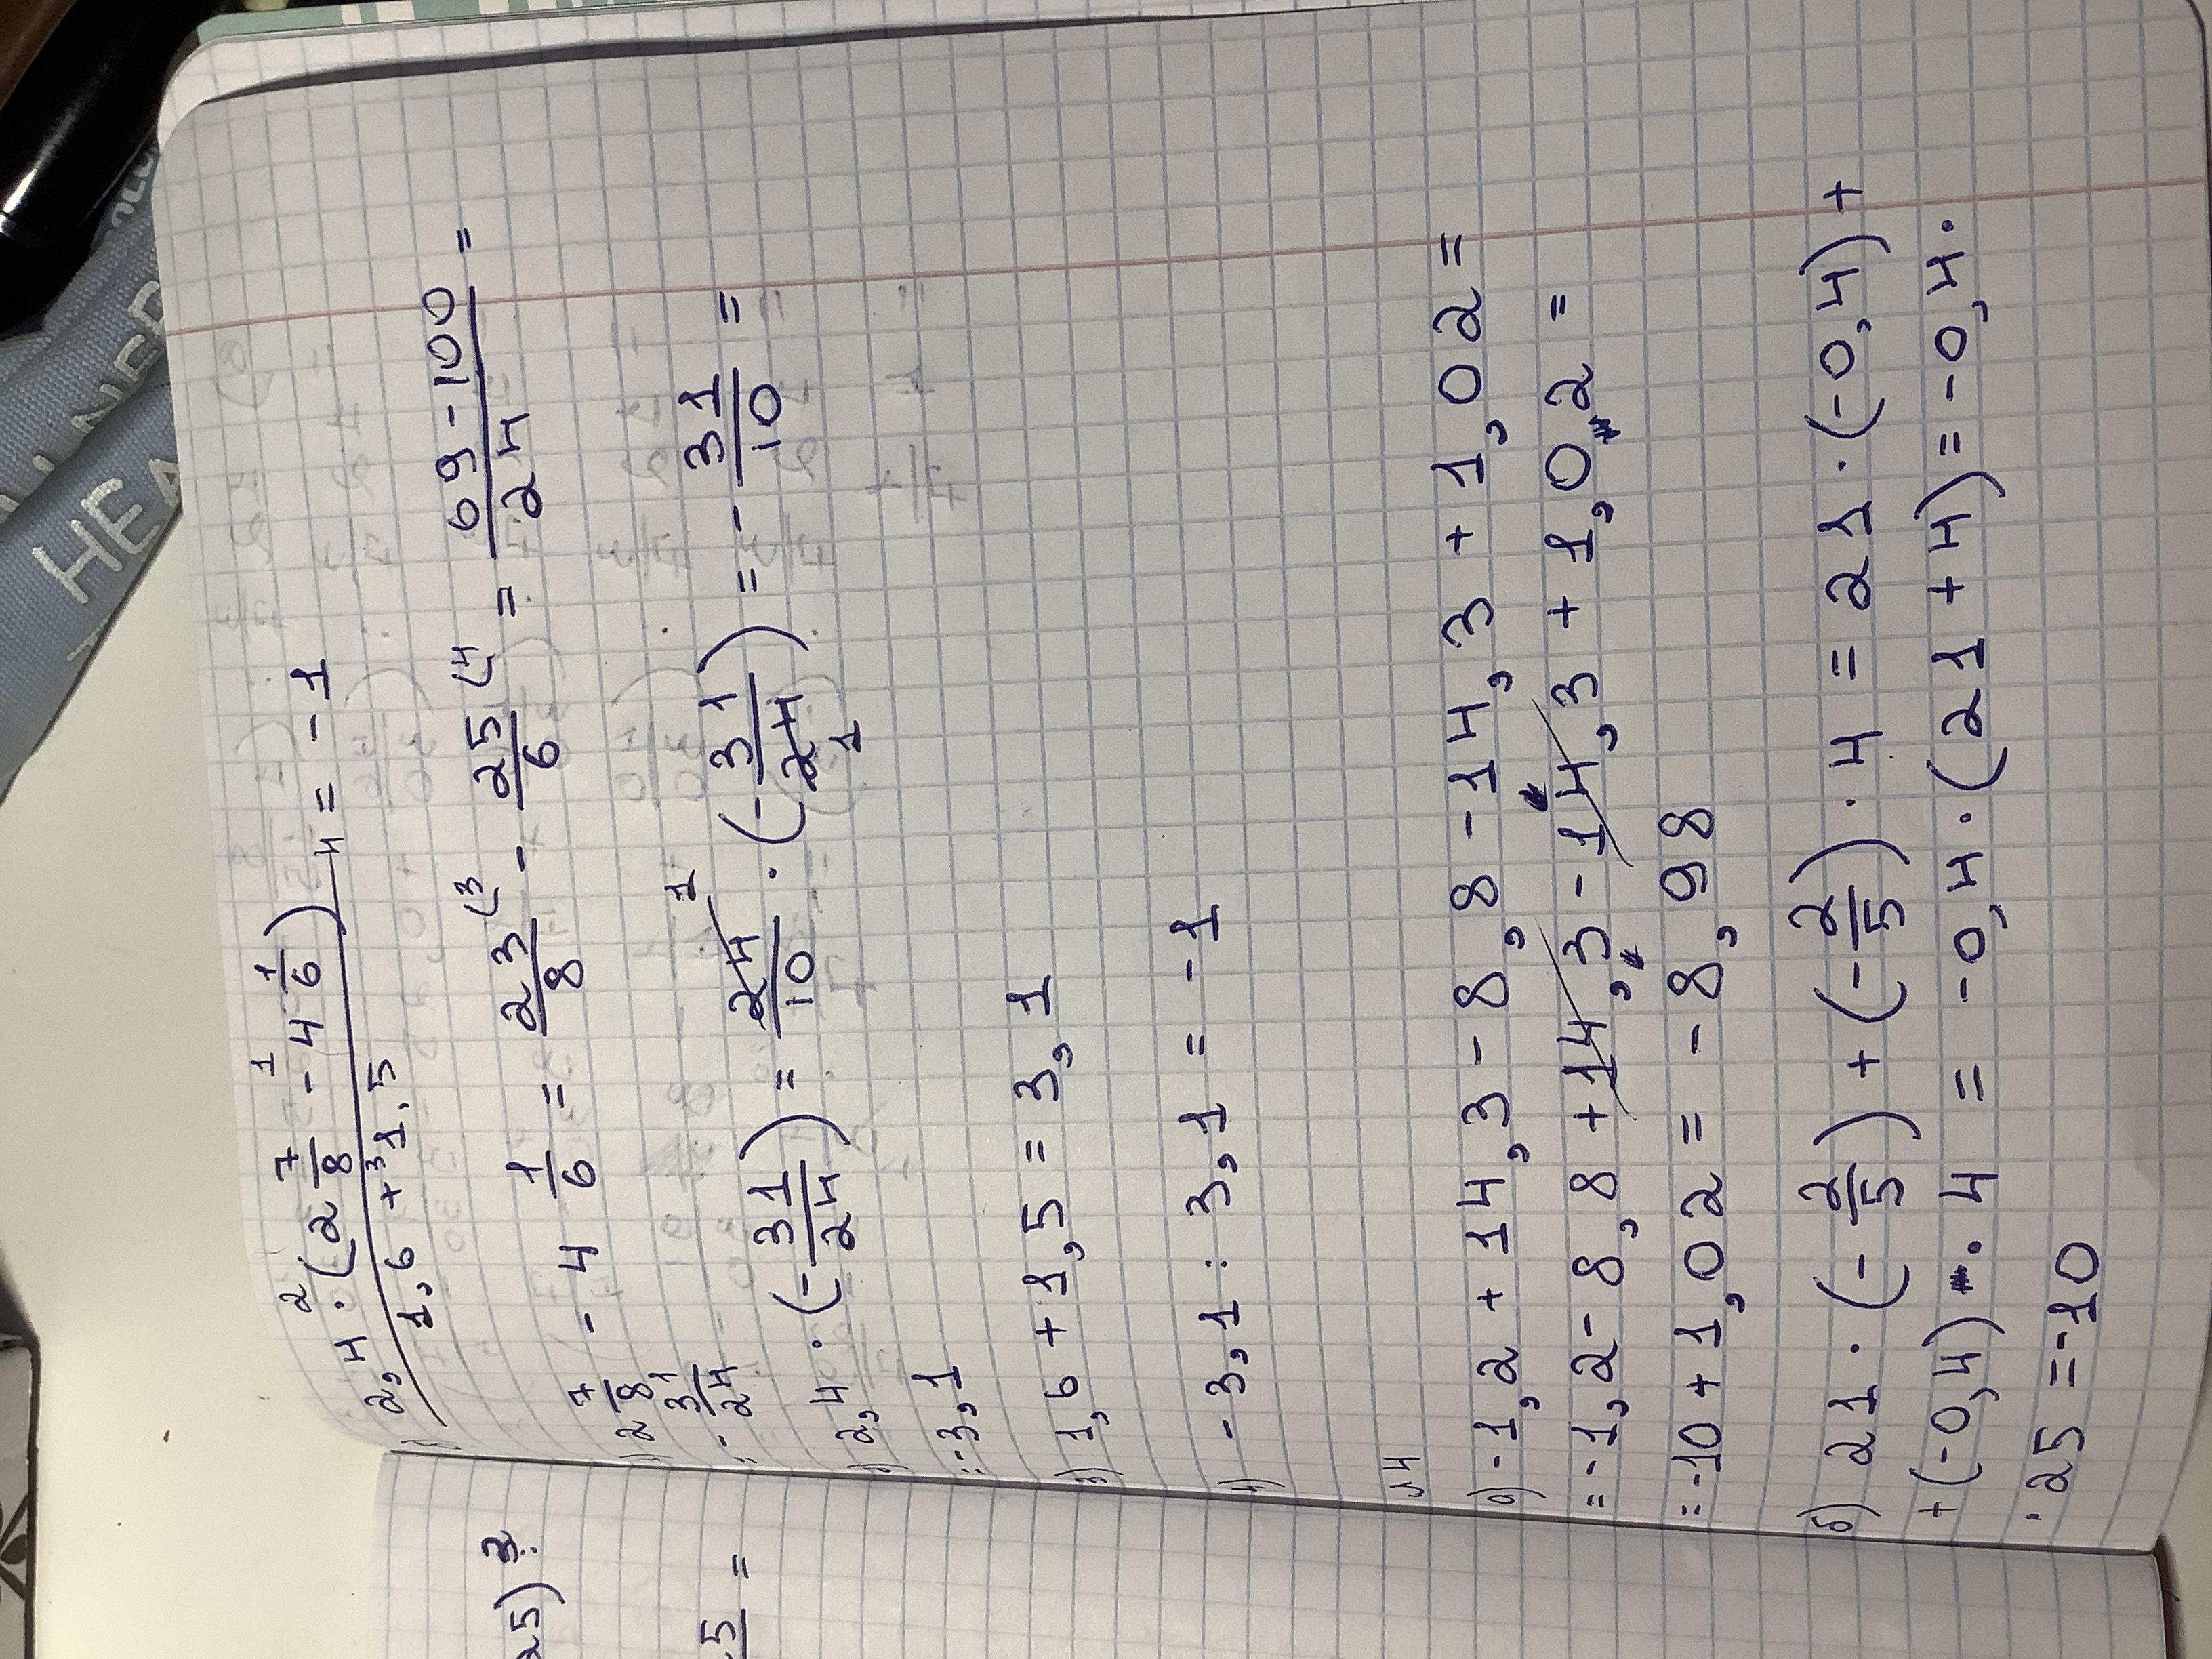 2,4 · (2 7/8 - 4 1/6) / 1,6 + 1,5 = -1
1) 2 7/8 - 4 1/6 = 23/8 (3 - 25/6 (4 = 69-100/24 =
= - 31/24
2) 2,4 · (- 31/24) = 24/10 · (- 31/24) = - 31/10 =
= -3,1
3) 1,6 + 1,5 = 3,1
4) -3,1 : 3,1 = -1
№4
а) -1,2 + 14,3 - 8,8 - 14,3 + 1,02 =
= -1,2 - 8,8 + 14,3 - 14,3 + 1,02 =
= -10 + 1,02 = -8,98
б) 21 · (- 2/5) + (- 2/5) · 4 = 21 · (-0,4) +
+ (-0,4) · 4 = -0,4 · (21 + 4) = -0,4 ·
· 25 = -10
25) 3.
5 =
HEA